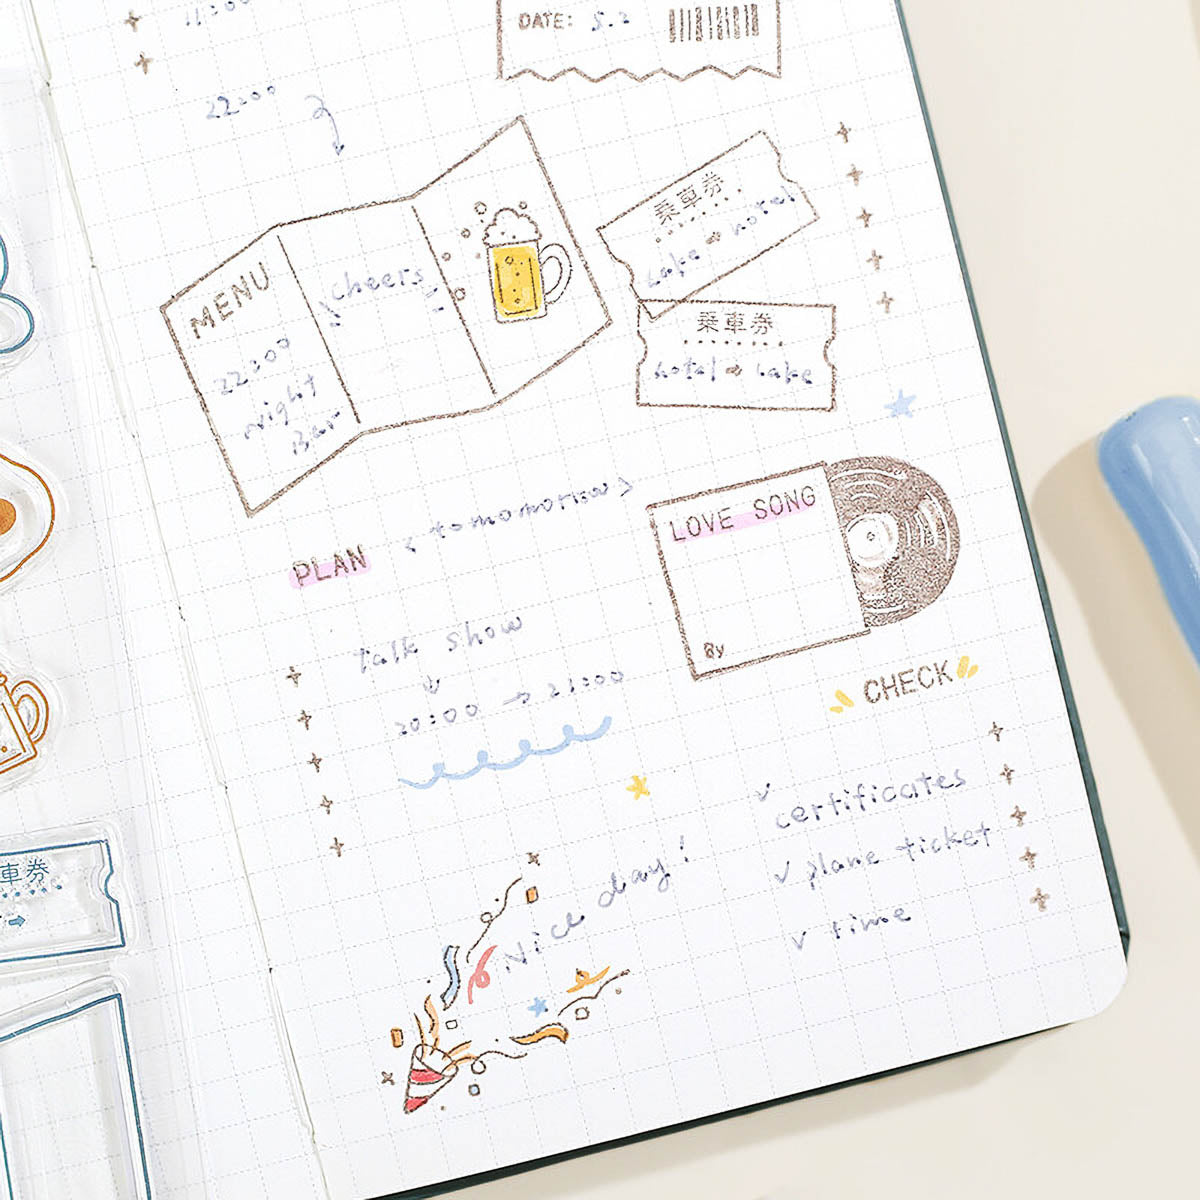 11:00
DATE: 5.2
22:00
MENU
22:00
night
Bar
cheers
乗車券
Lake → hotel
乗車券
hotel → Lake
PLAN < tomomorrow >
LOVE SONG
By
talk show
20:00 → 21:00
CHECK
certificates
plane ticket
time
Nice day!
車券